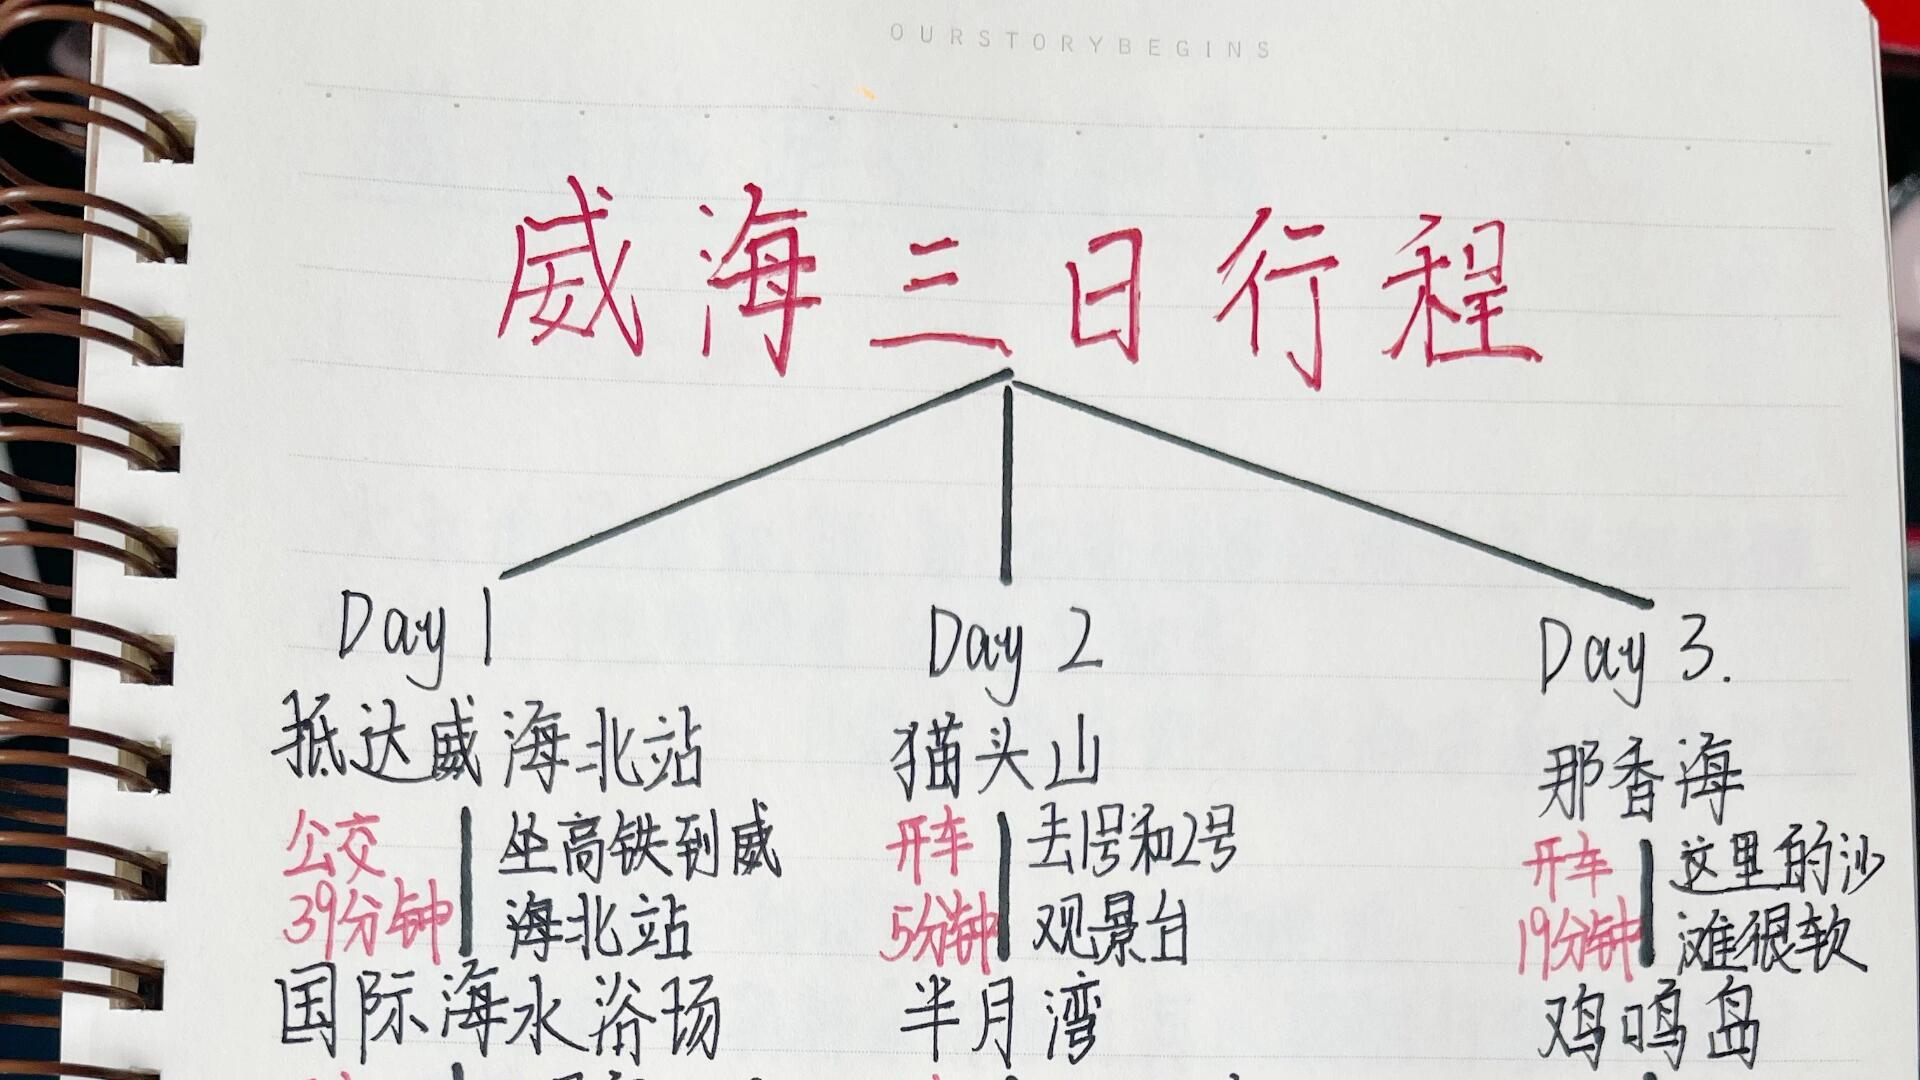 OURSTORYBEGINS
威海三日行程
Day 1
抵达威海北站
公交
39分钟
坐高铁到威
海北站
国际海水浴场
Day 2
猫头山
开车
5分钟
去1号和2号
观景台
半月湾
Day 3.
那香海
开车
19分钟
这里的沙
滩很软
鸡鸣岛